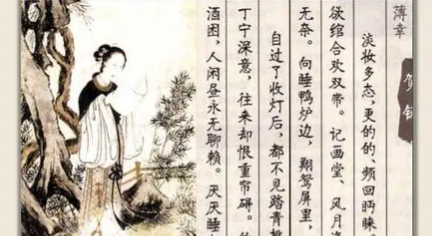 薄幸
贺铸
淡妆多态,更的的、频回眄睐
欲绾合欢双带。记画堂、风月
无奈。向睡鸭炉边,翔鸳屏里,
自过了收灯后,都不见踏青
丁宁深意,往来却恨重帘碍。
酒困,人闲昼永无聊赖。厌厌睡